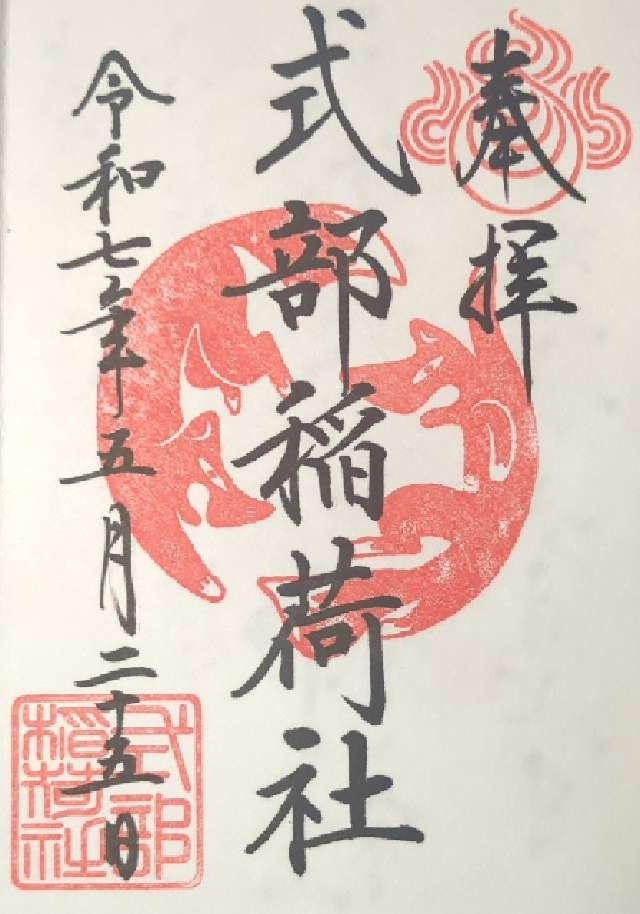 奉拝
式部稲荷社
令和七年五月二十五日
式部
稲荷社